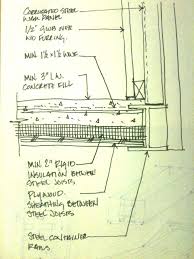 CORRUGATED STEEL
WALL PANEL
1/2" GWB OVER
WD FURRING.
MIN. 1½ x 1½ WWF
MIN. 3" L.W.
CONCRETE FILL
MIN 2" RIGID
INSULATION BETWEEN
STEEL JOISTS
PLYWOOD
SHEATHING BETWEEN
STEEL JOISTS
STEEL CONTAINER
RAILS